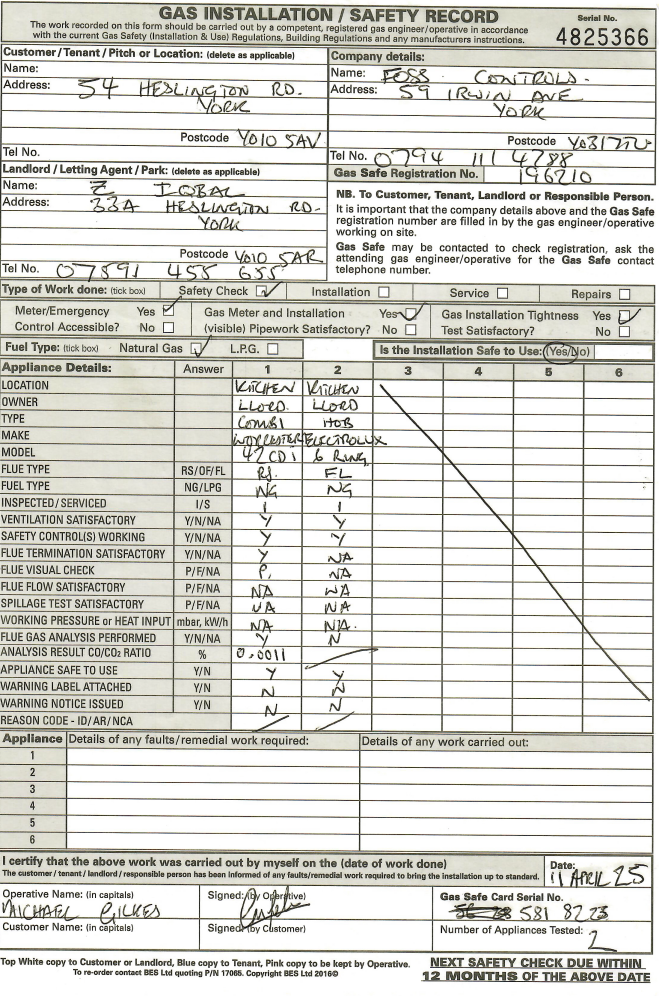 GAS INSTALLATION / SAFETY RECORD
The work recorded on this form should be carried out by a competent, registered gas engineer/operative in accordance
with the current Gas Safety (Installation & Use) Regulations, Building Regulations and any manufacturers instructions.
Serial No.
4825366
Customer/Tenant/Pitch or Location: (delete as applicable)
Name:
Address: 54 HESLINGTON RD.
YORK
Postcode YO10 5AV
Tel No.
Company details:
Name: FOSS CONTROLS.
Address: 59 IRWIN AVE
YORK
Postcode
Tel No. 0794 111 4788
Gas Safe Registration No. 196210
Landlord / Letting Agent / Park: (delete as applicable)
Name: Z IQBAL
Address: 33A HESLINGTON RD.
YORK
Postcode YO10 5AR
Tel No. 07891 455 655
NB. To Customer, Tenant, Landlord or Responsible Person.
It is important that the company details above and the Gas Safe
registration number are filled in by the gas engineer/operative
working on site.
Gas Safe may be contacted to check registration, ask the
attending gas engineer/operative for the Gas Safe contact
telephone number.
Type of Work done: (tick box) Safety Check Installation Service Repairs
Meter/Emergency Yes Gas Meter and Installation Yes Gas Installation Tightness Yes
Control Accessible? No (visible) Pipework Satisfactory? No Test Satisfactory? No
Fuel Type: (tick box) Natural Gas L.P.G. Is the Installation Safe to Use: (Yes/No)
Appliance Details: Answer 1 2 3 4 5 6
LOCATION KITCHEN KITCHEN
OWNER LLORD. LLORD
TYPE COMBI HOB
MAKE WORCESTER ELECTROLUX
MODEL 42 CDI 6 RING
FLUE TYPE RS/OF/FL RS. FL
FUEL TYPE NG/LPG NG NG
INSPECTED/SERVICED I/S I I
VENTILATION SATISFACTORY Y/N/NA Y Y
SAFETY CONTROL(S) WORKING Y/N/NA Y Y
FLUE TERMINATION SATISFACTORY Y/N/NA Y NA
FLUE VISUAL CHECK P/F/NA P. NA
FLUE FLOW SATISFACTORY P/F/NA NA NA
SPILLAGE TEST SATISFACTORY P/F/NA NA NA
WORKING PRESSURE or HEAT INPUT mbar, kW/h NA NA.
FLUE GAS ANALYSIS PERFORMED Y/N/NA Y N
ANALYSIS RESULT CO/CO2 RATIO % 0.0011
APPLIANCE SAFE TO USE Y/N Y Y
WARNING LABEL ATTACHED Y/N N N
WARNING NOTICE ISSUED Y/N N N
REASON CODE - ID/AR/NCA
Appliance Details of any faults/remedial work required: Details of any work carried out:
1
2
3
4
5
6
I certify that the above work was carried out by myself on the (date of work done)
The customer/tenant/landlord/responsible person has been informed of any faults/remedial work required to bring the installation up to standard.
Date:
11 APRIL 25
Operative Name: (in capitals)
MICHAEL GILKES
Signed: (by Operative)
Gas Safe Card Serial No.
581 8223
Customer Name: (in capitals)
Signed: (by Customer)
Number of Appliances Tested:
2
Top White copy to Customer or Landlord, Blue copy to Tenant, Pink copy to be kept by Operative.
To re-order contact BES Ltd quoting P/N 17065. Copyright BES Ltd 2016©
NEXT SAFETY CHECK DUE WITHIN
12 MONTHS OF THE ABOVE DATE